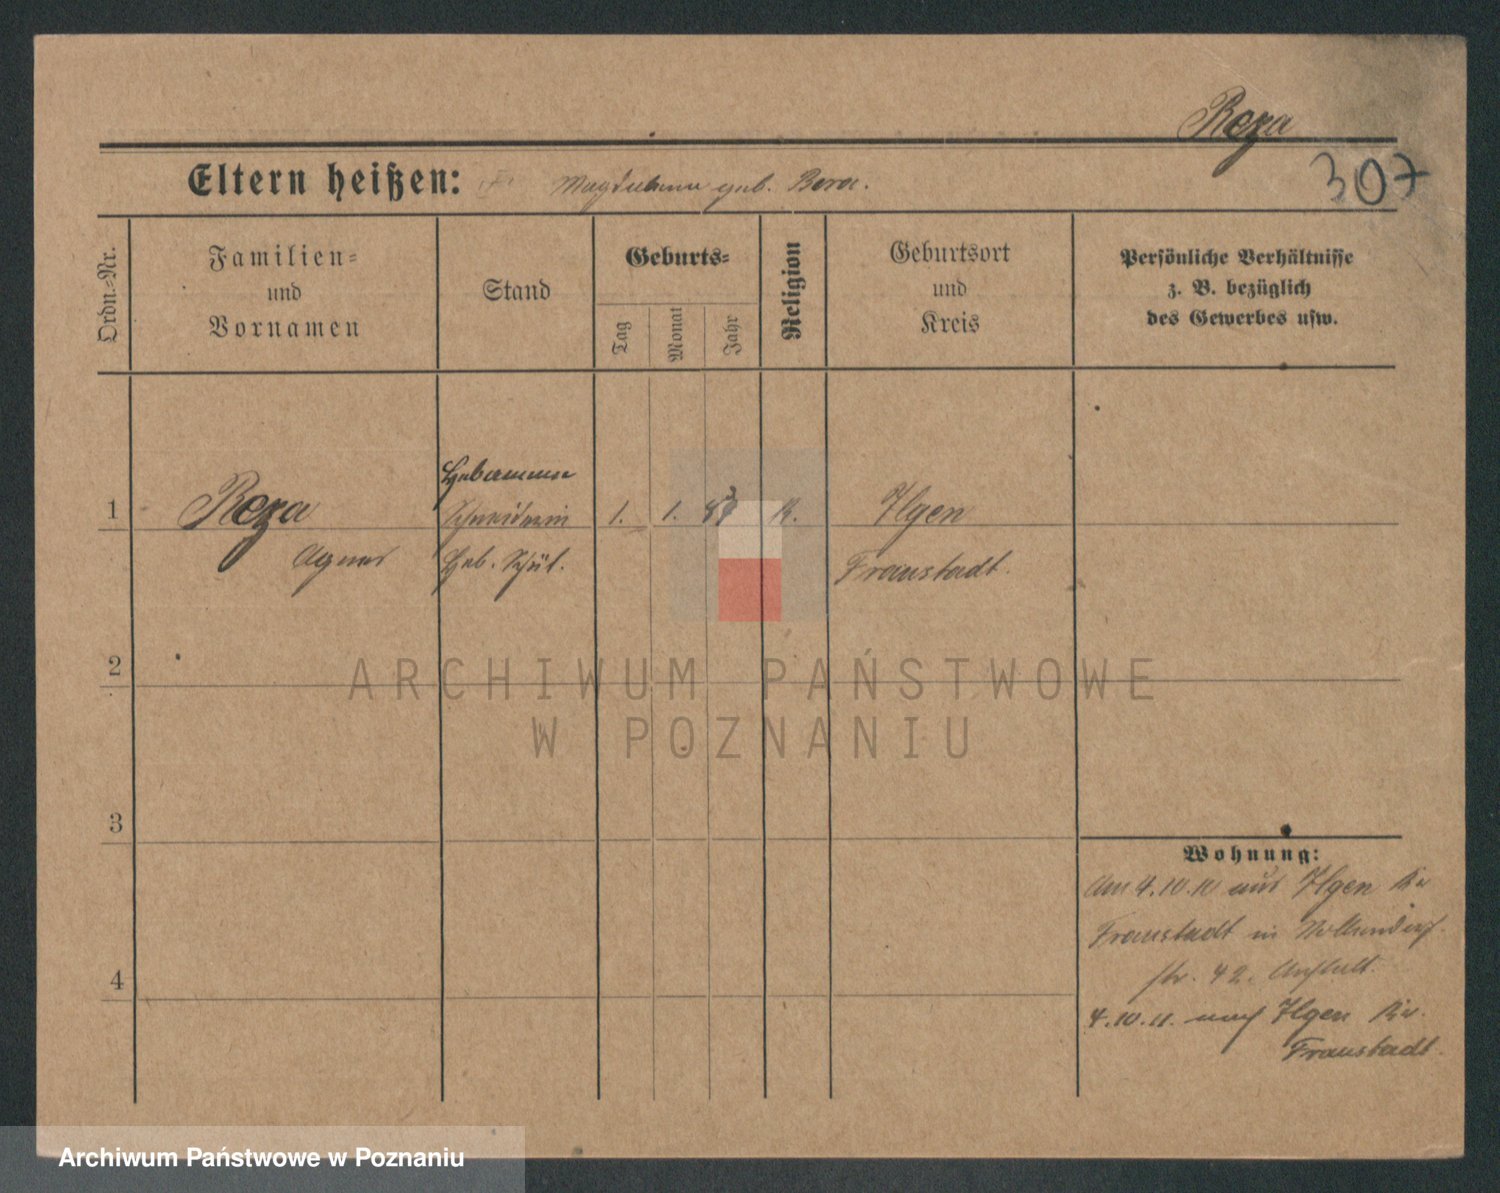 Reza
307
Eltern heißen: Magdalena geb. Bera.
Ordn.=Nr.
Familien=
und
Vornamen
Stand
Geburts=
Tag
Monat
Jahr
Religion
Geburtsort
und
Kreis
Persönliche Verhältnisse
z. B. bezüglich
des Gewerbes usw.
Hebamme
1 Reza Schneiderin 1. 1. K. Ilgen
Agnes Heb. Schül. Fraustadt.
2
ARCHIWUM PAŃSTWOWE
W POZNANIU
3
Wohnung:
Am 4.10.10 aus Ilgen Kr
Fraustadt in
str. 42. Anstalt.
4
4.10.11. nach Ilgen Kr.
Fraustadt.
Archiwum Państwowe w Poznaniu